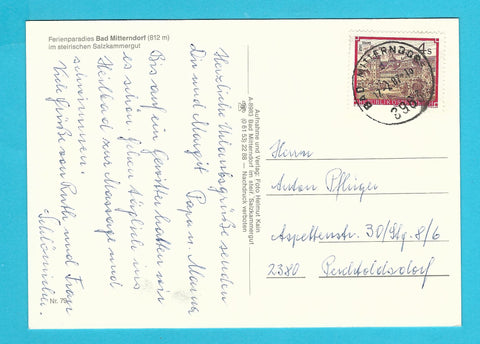 Ferienparadies Bad Mitterndorf (812 m)
im steirischen Salzkammergut
Herzliche Urlaubsgrüße senden
Dir und Margit Papa u. Mama
Bis auf ein Gewitter hatten wir
es schön, fahren täglich ins
Heilbad zur Massage und
schwimmen.
Viele Grüße von Ruth und Franz
Aufnahme und Verlag: Foto Helmut Kain
A-8983 Bad Mitterndorf im steir. Salzkammergut
(0 61 53) 22 88 — Nachdruck verboten
4 S
REPUBLIK
BAD MITTERNDORF
Herrn
Anton Pflieger
Aspettenstr. 30/Stg. 8/6
2380 Perchtoldsdorf